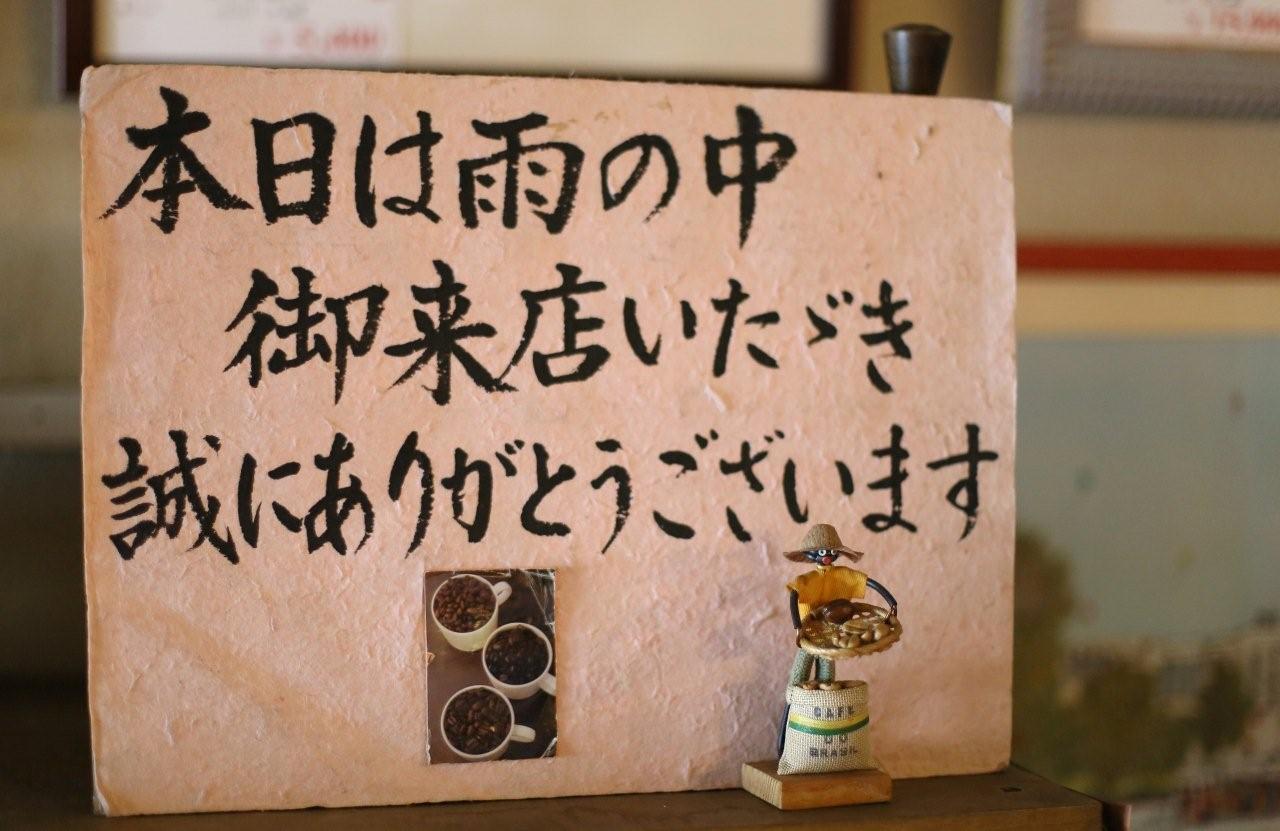 本日は雨の中
御来店いたゞき
誠にありがとうございます
CAFE
BRASIL